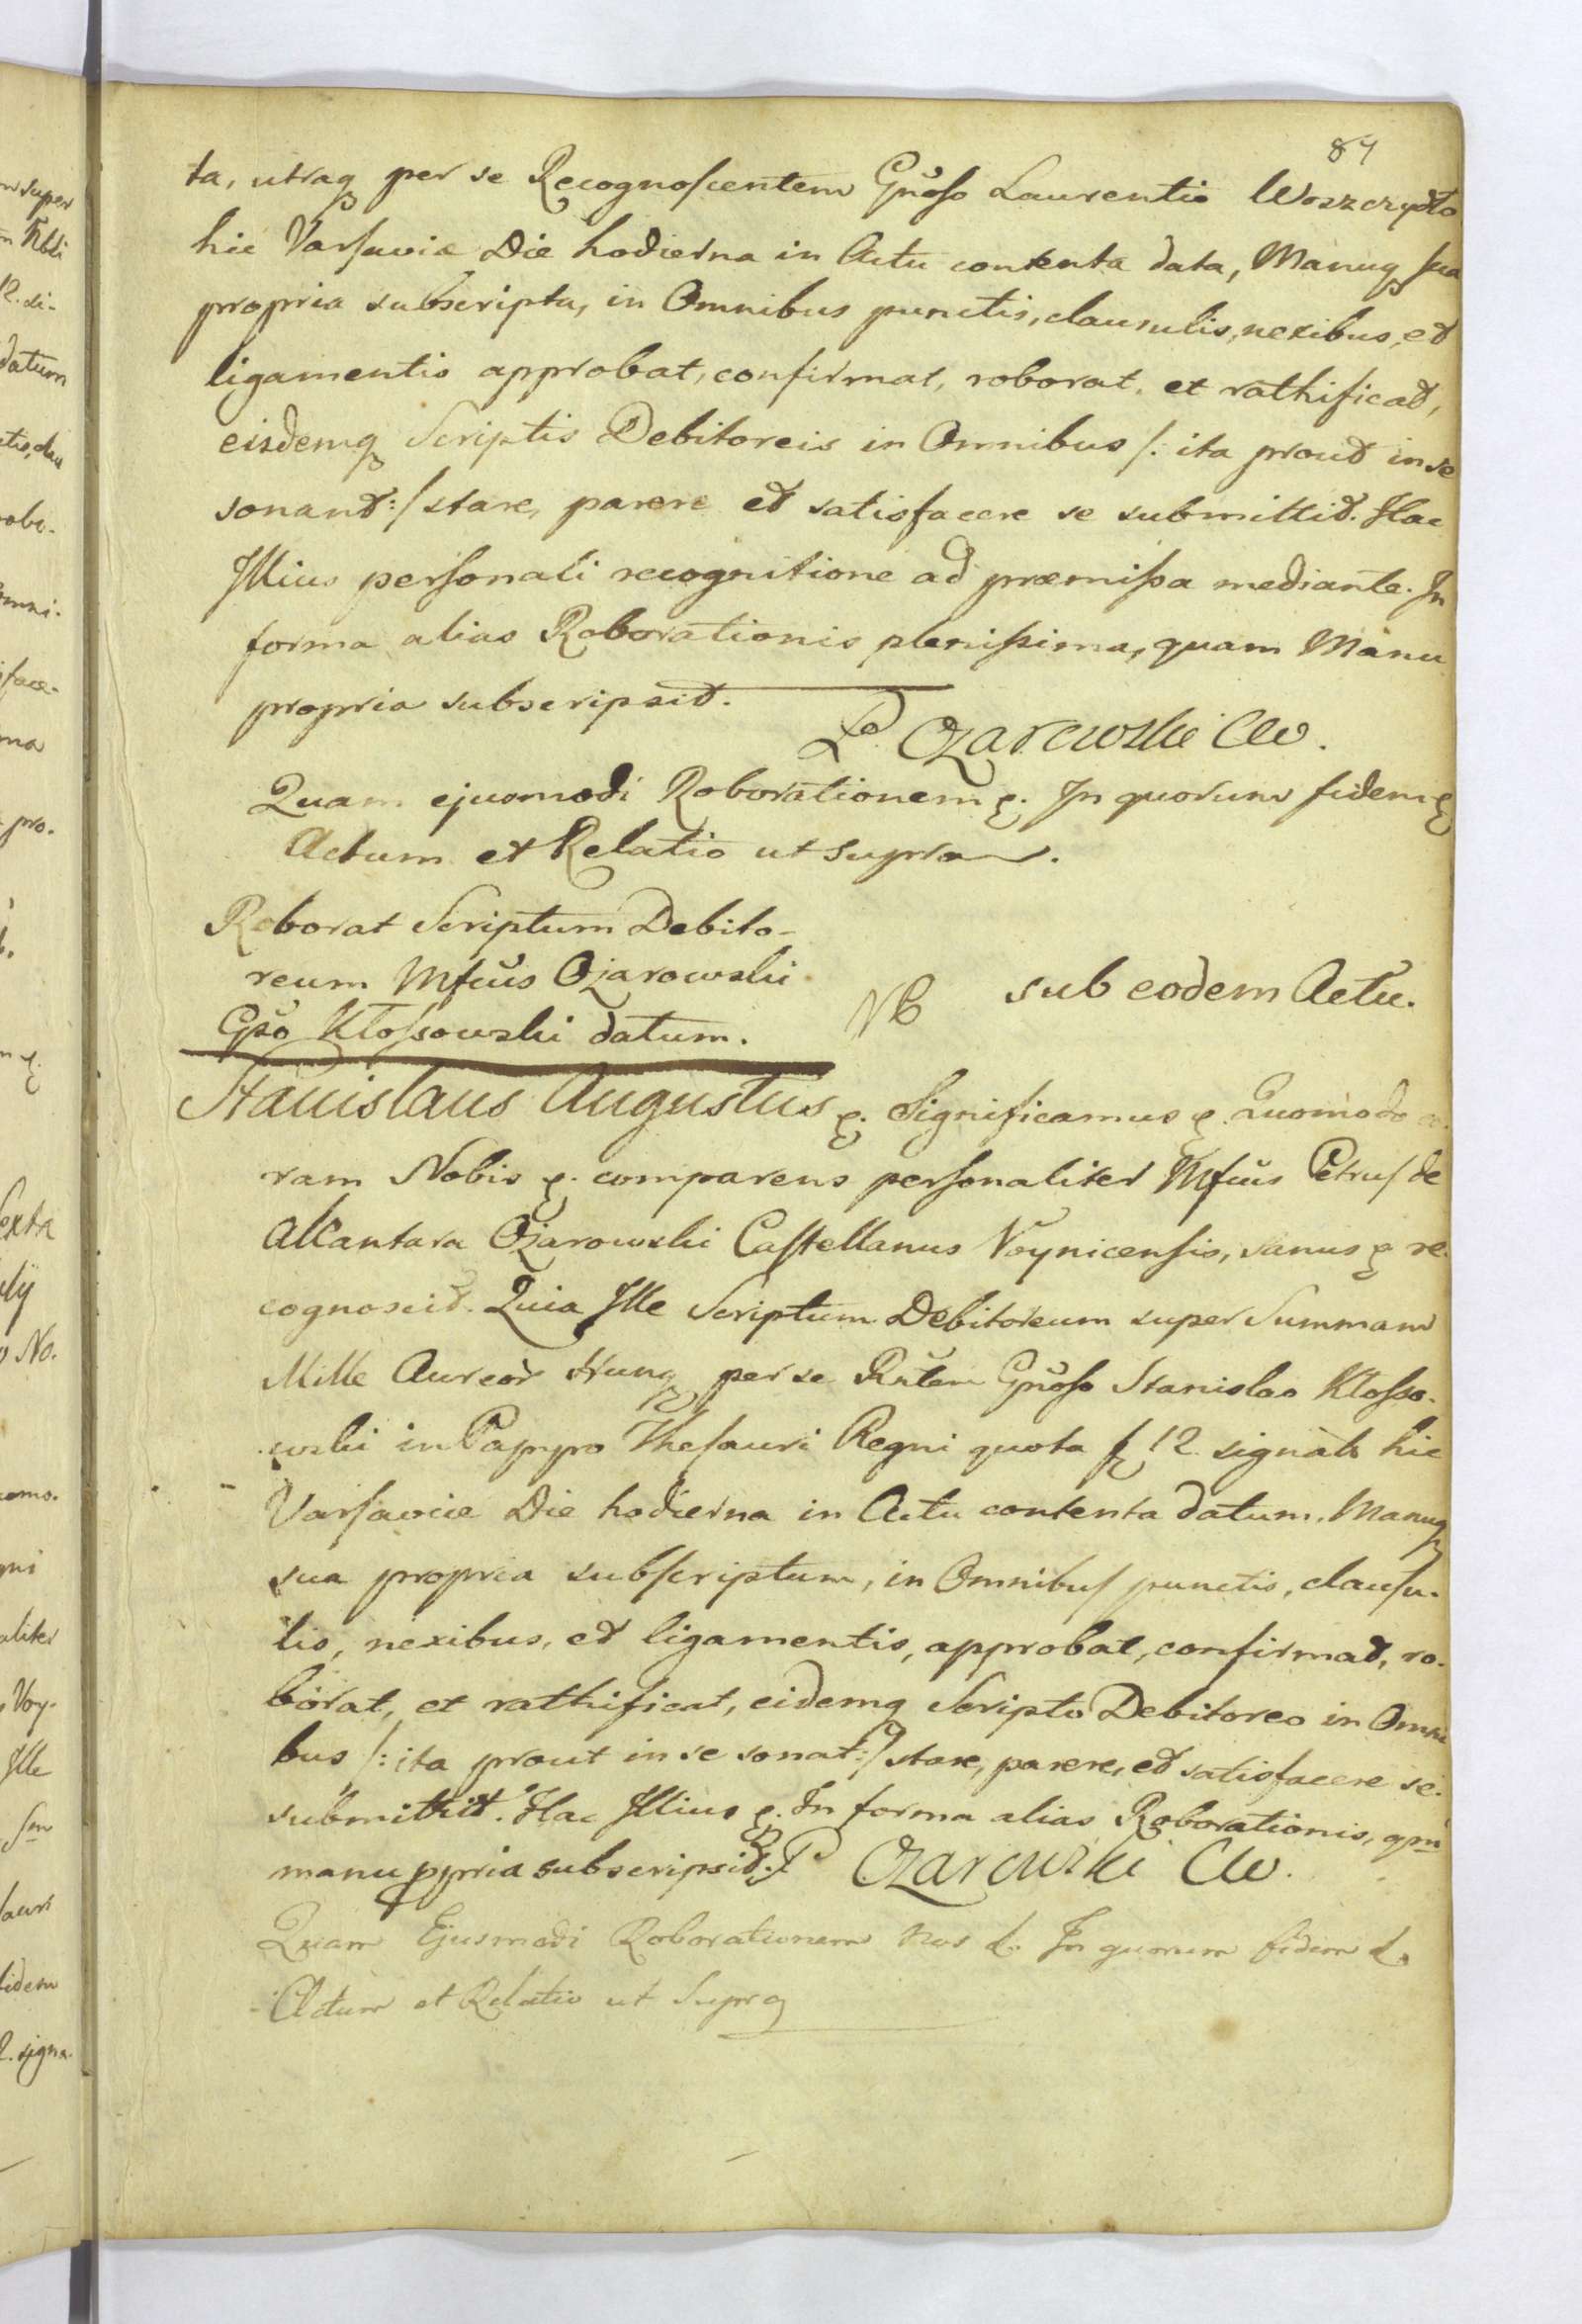 87
ta, utraq per se Recognoscentem Gnoso Laurentio Woszczydto
hic Varsaviæ Die hodierna in Actu contenta data, Manuq sua
propria subscripta, in Omnibus punctis, clausulis, nexibus, et
ligamentis approbat, confirmat, roborat, et rathificat,
eisdemq Scriptis Debitoreis in Omnibus /: ita prout in se
sonant :/ stare, parere et satisfacere se submittit. Hac
Illius personali recognitione ad præmissa mediante. In
forma alias Roborationis plenissima, quam Manu
propria subscripsit.
P Ożarowski CW.
Quam ejusmodi Roborationem &. In quorum fidem &
Actum et Relatio ut supra.
Roborat Scriptum Debito-
reum Mfcus Ożarowski
Gso Kłossowski datum.
NB sub eodem Actu.
Stanislaus Augustus &. Significamus &. Quomodo co-
ram Nobis &. comparens personaliter Mfcus Petrus de
Alcantara Ożarowski Castellanus Voynicensis, sanus & re-
cognoscit. Quia Ille Scriptum Debitoreum super Summam
Mille Aureor Hung per se Rntem Gnoso Stanislao Kłosso-
wski in Papyro Thesauri Regni quota f 12 signato hic
Varsaviæ Die hodierna in Actu contenta datum, Manuq
sua propria subscriptum, in Omnibus punctis, clausu-
lis, nexibus, et ligamentis, approbat, confirmat, ro-
borat, et rathificat, eidemq Scripto Debitoreo in Omni
bus /: ita prout in se sonat :/ stare, parere, et satisfacere se
submittit. Hac Illius &. In forma alias Roborationis, qm
manu ppria subscripsit. P Ożarowski CW.
Quam Ejusmodi Roborationem Nos &. In quorum fidem &.
Actum et Relatio ut Supra